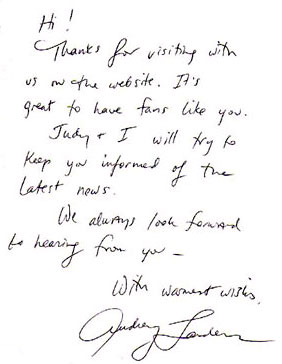 Hi!
Thanks for visiting with
us on the website. It's
great to have fans like you.
Judy + I will try to
keep you informed of the
latest news.
We always look forward
to hearing from you —
With warmest wishes,
Audrey Landers